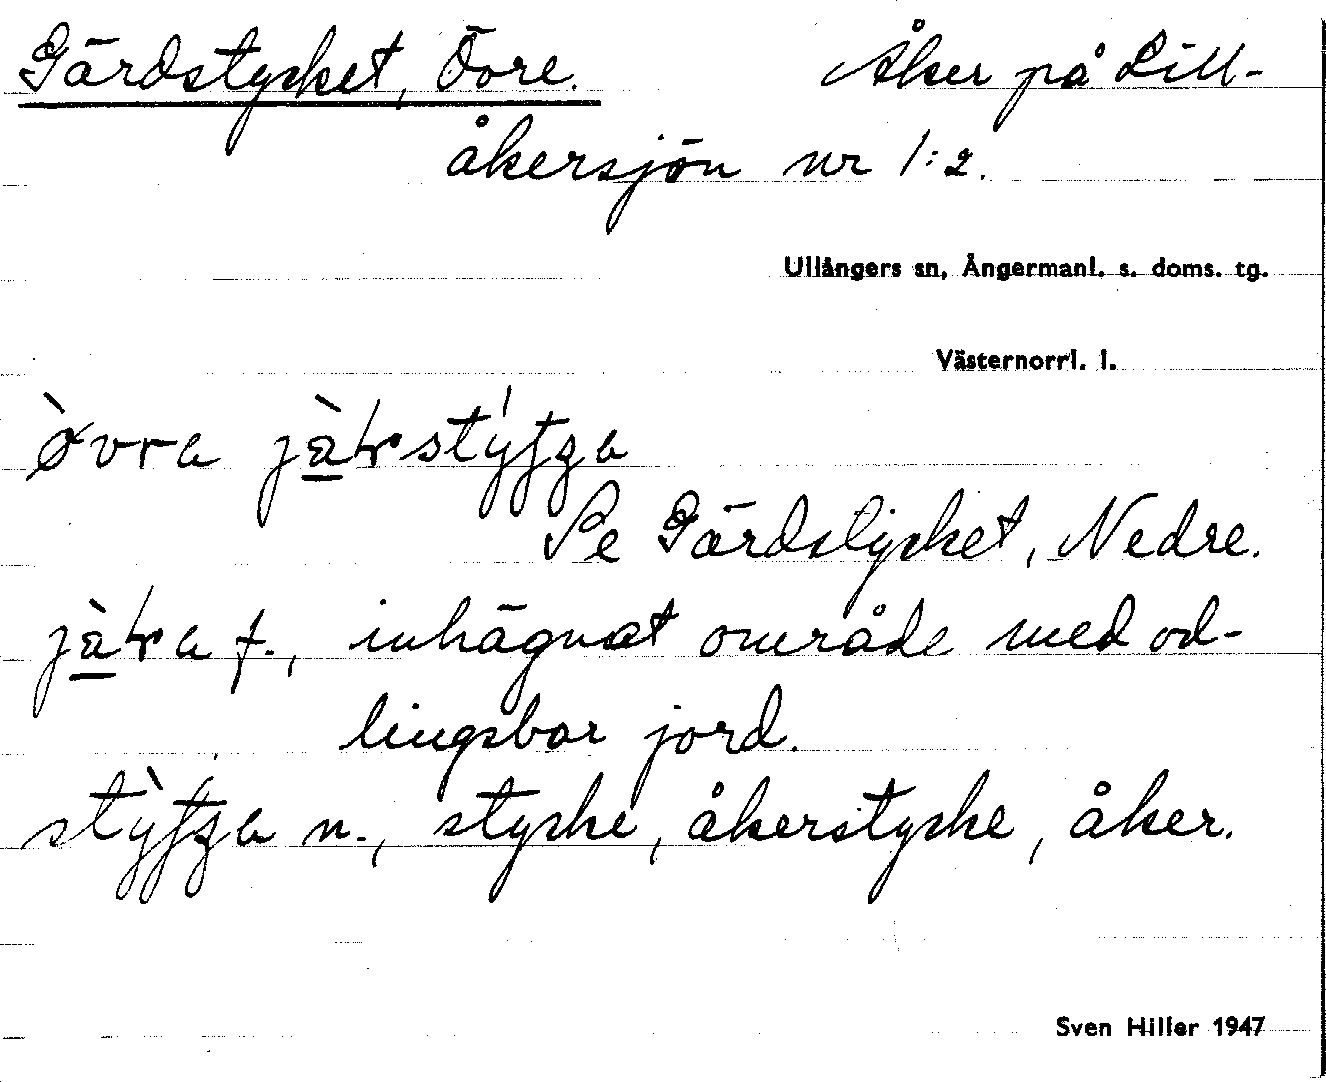 Gärdstycket, Övre. Åker på Lill-
åkersjön nr 1:2.
Ullångers sn, Ångermanl. s. doms. tg.
Västernorrl. l.
òvra
Se Gärdstycket, Nedre.
f., inhägnat område med od-
lingsbar jord.
n., stycke, åkerstycke, åker.
Sven Hiller 1947